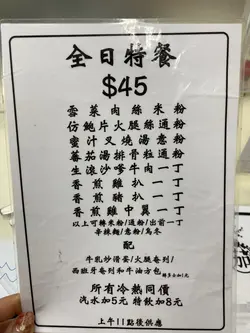 全日特餐
$45
雪菜肉絲米粉
仿鮑片火腿絲通粉
蜜汁叉燒湯意粉
蕃茄湯排骨粒通粉
生滾沙嗲牛肉一丁
香煎雞扒一丁
香煎豬扒一丁
香煎雞中翼一丁
以上可轉米粉/通粉/出前一丁
辛辣麵/意粉/烏冬
配
牛乳炒滑蛋/火腿卷列/
西班牙卷列和牛油方包
所有冷熱同價
汽水加5元 特飲加8元
上午11點後供應